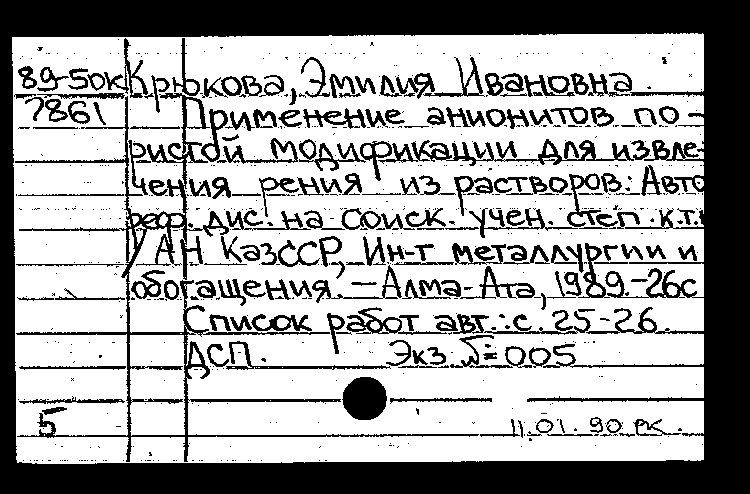 89-50к Крюкова, Эмилия Ивановна.
7861 Применение анионитов по-
ристой модификации для извле-
чения рения из растворов: Авто
реф. дис. на соиск. учен. степ. к.т.н
/ АН КазССР, Ин-т металлургии и
обогащения. — Алма-Ата, 1989. - 26с
Список работ авт.: с. 25-26.
ДСП. Экз. № 005
5 11.01.90 РК.